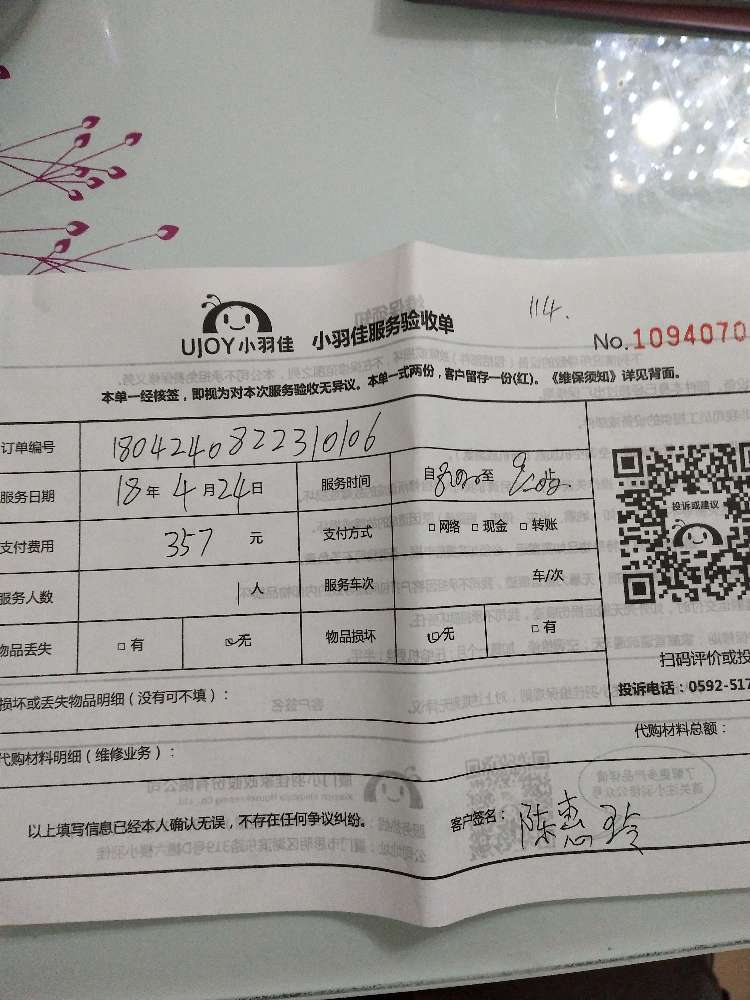 114.
UJOY小羽佳 小羽佳服务验收单 No.1094070
本单一经核签，即视为对本次服务验收无异议。本单一式两份，客户留存一份(红)。《维保须知》详见背面。
订单编号 1804240822310106
服务日期 18年4月24日 服务时间 自8:00至
支付费用 357 元 支付方式 □网络 □现金 □转账
投诉或建议
服务人数 人 服务车次 车/次
物品丢失 □有 □无 物品损坏 □无 □有
扫码评价或投
投诉电话：0592-517
损坏或丢失物品明细（没有可不填）：
代购材料明细（维修业务）： 代购材料总额：
以上填写信息已经本人确认无误，不存在任何争议纠纷。 客户签名：陈惠玲